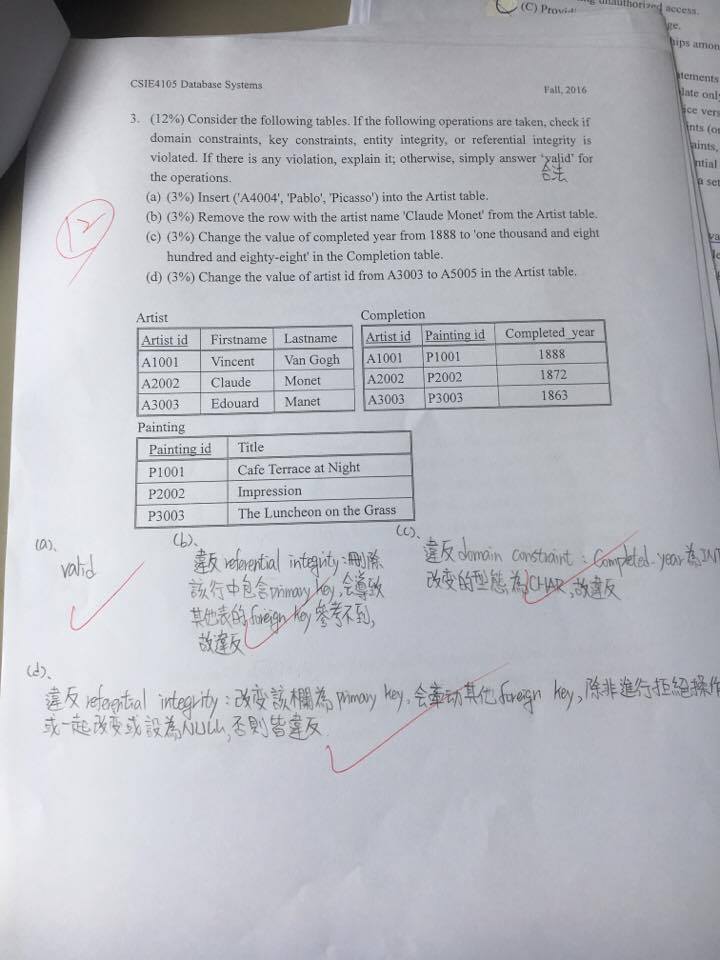 unauthorized access.
(C)
ge.
ships among
tements
late only
ice vers
ints (or
aints,
ntial
a set
CSIE4105 Database Systems
Fall, 2016
3. (12%) Consider the following tables. If the following operations are taken, check if
domain constraints, key constraints, entity integrity, or referential integrity is
violated. If there is any violation, explain it; otherwise, simply answer 'valid' for
合法
the operations.
(a) (3%) Insert ('A4004', 'Pablo', 'Picasso') into the Artist table.
(b) (3%) Remove the row with the artist name 'Claude Monet' from the Artist table.
(c) (3%) Change the value of completed year from 1888 to 'one thousand and eight
hundred and eighty-eight' in the Completion table.
(d) (3%) Change the value of artist id from A3003 to A5005 in the Artist table.
12
Artist
Artist id Firstname Lastname
A1001 Vincent Van Gogh
A2002 Claude Monet
A3003 Edouard Manet
Completion
Artist id Painting id Completed_year
A1001 P1001 1888
A2002 P2002 1872
A3003 P3003 1863
Painting
Painting id Title
P1001 Cafe Terrace at Night
P2002 Impression
P3003 The Luncheon on the Grass
(a)、
valid
(b)、
違反 referential integrity：刪除
該行中包含primary key，会導致
其他表的foreign key參考不到，
故違反
(c)、
違反 domain constraint：Completed_year為INT
改变的型態為CHAR，故違反
(d)、
違反 referential integrity：改变該欄為 primary key，会牽动其他foreign key，除非進行拒絕操作
或一起改变或設為NULL，否則皆違反